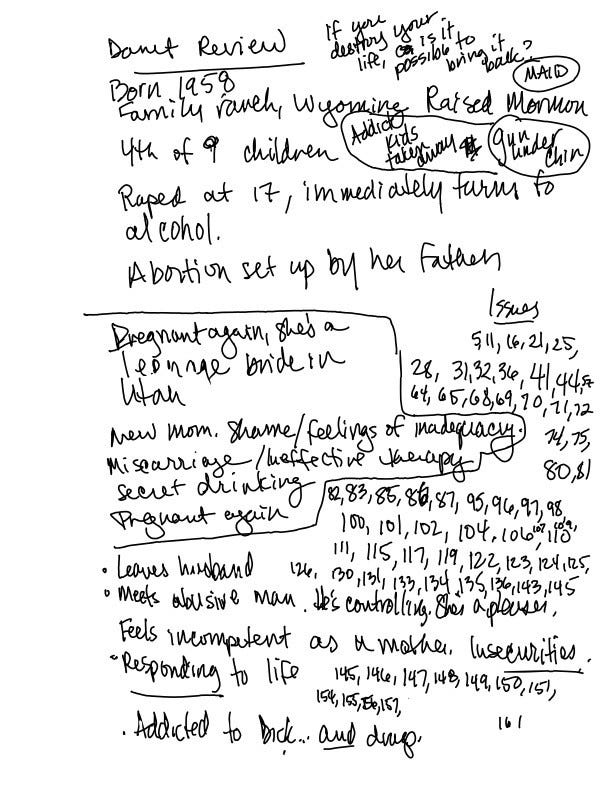 Damt Review
If you
destroy your
life, is it
possible to
bring it
back?
MAID
Born 1958
Family ranch, Wyoming Raised Mormon
4th of 9 children
Addict
kids
taken
away
gun
under
chin
Raped at 17, immediately turns to
alcohol.
Abortion set up by her Father
Issues
5, 11, 16, 21, 25,
28, 31, 32, 36, 41, 44,
64, 65, 68, 69, 70, 71, 72
74, 75,
80, 81
Pregnant again, she's a
teenage bride in
Utah
New mom. Shame/feelings of inadequacy.
miscarriage/Ineffective therapy
secret drinking
Pregnant again
82, 83, 85, 86, 87, 95, 96, 97, 98
100, 101, 102, 104, 106, 107, 109, 110
111, 115, 117, 119, 122, 123, 124, 125,
126, 130, 131, 133, 134, 135, 136, 143, 145
• Leaves husband
• Meets abusive man. He's controlling. She's a pleaser.
Feels incompetent as a mother. Insecurities.
• Responding to life
145, 146, 147, 148, 149, 150, 151,
154, 155, 156, 157,
161
• Addicted to Dick... and drug.